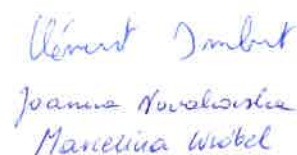 Clément Imbert
Joanna Nowakowska
Marcelina Wróbel